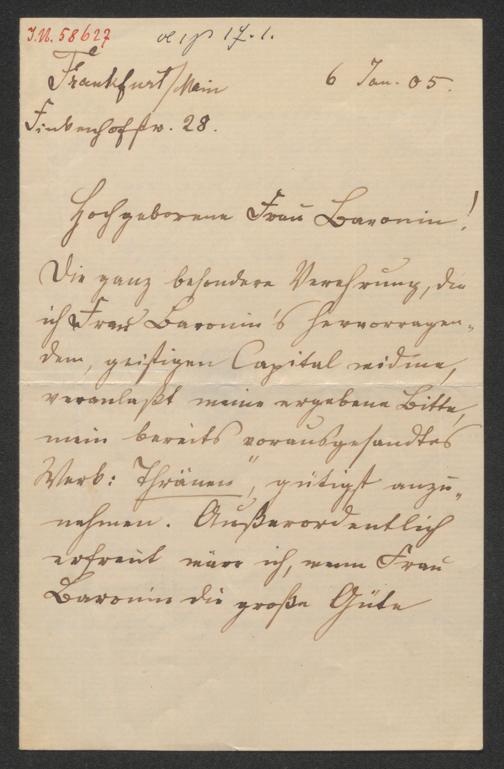 J.N. 58627
17.1.
Frankfurt/Main
6 Jan. 05.
Finkenhofstr. 28.
Hochgeborene Frau Baronin!
Die ganz besondere Verehrung, die
ich Frau Baronin's hervorragen-
dem, geistigen Capital widme,
veranlaßt meine ergebene Bitte,
mein bereits vorausgesandtes
Werk: Thränen", gütigst anzu-
nehmen. Außerordentlich
erfreut wäre ich, wenn Frau
Baronin die große Güte